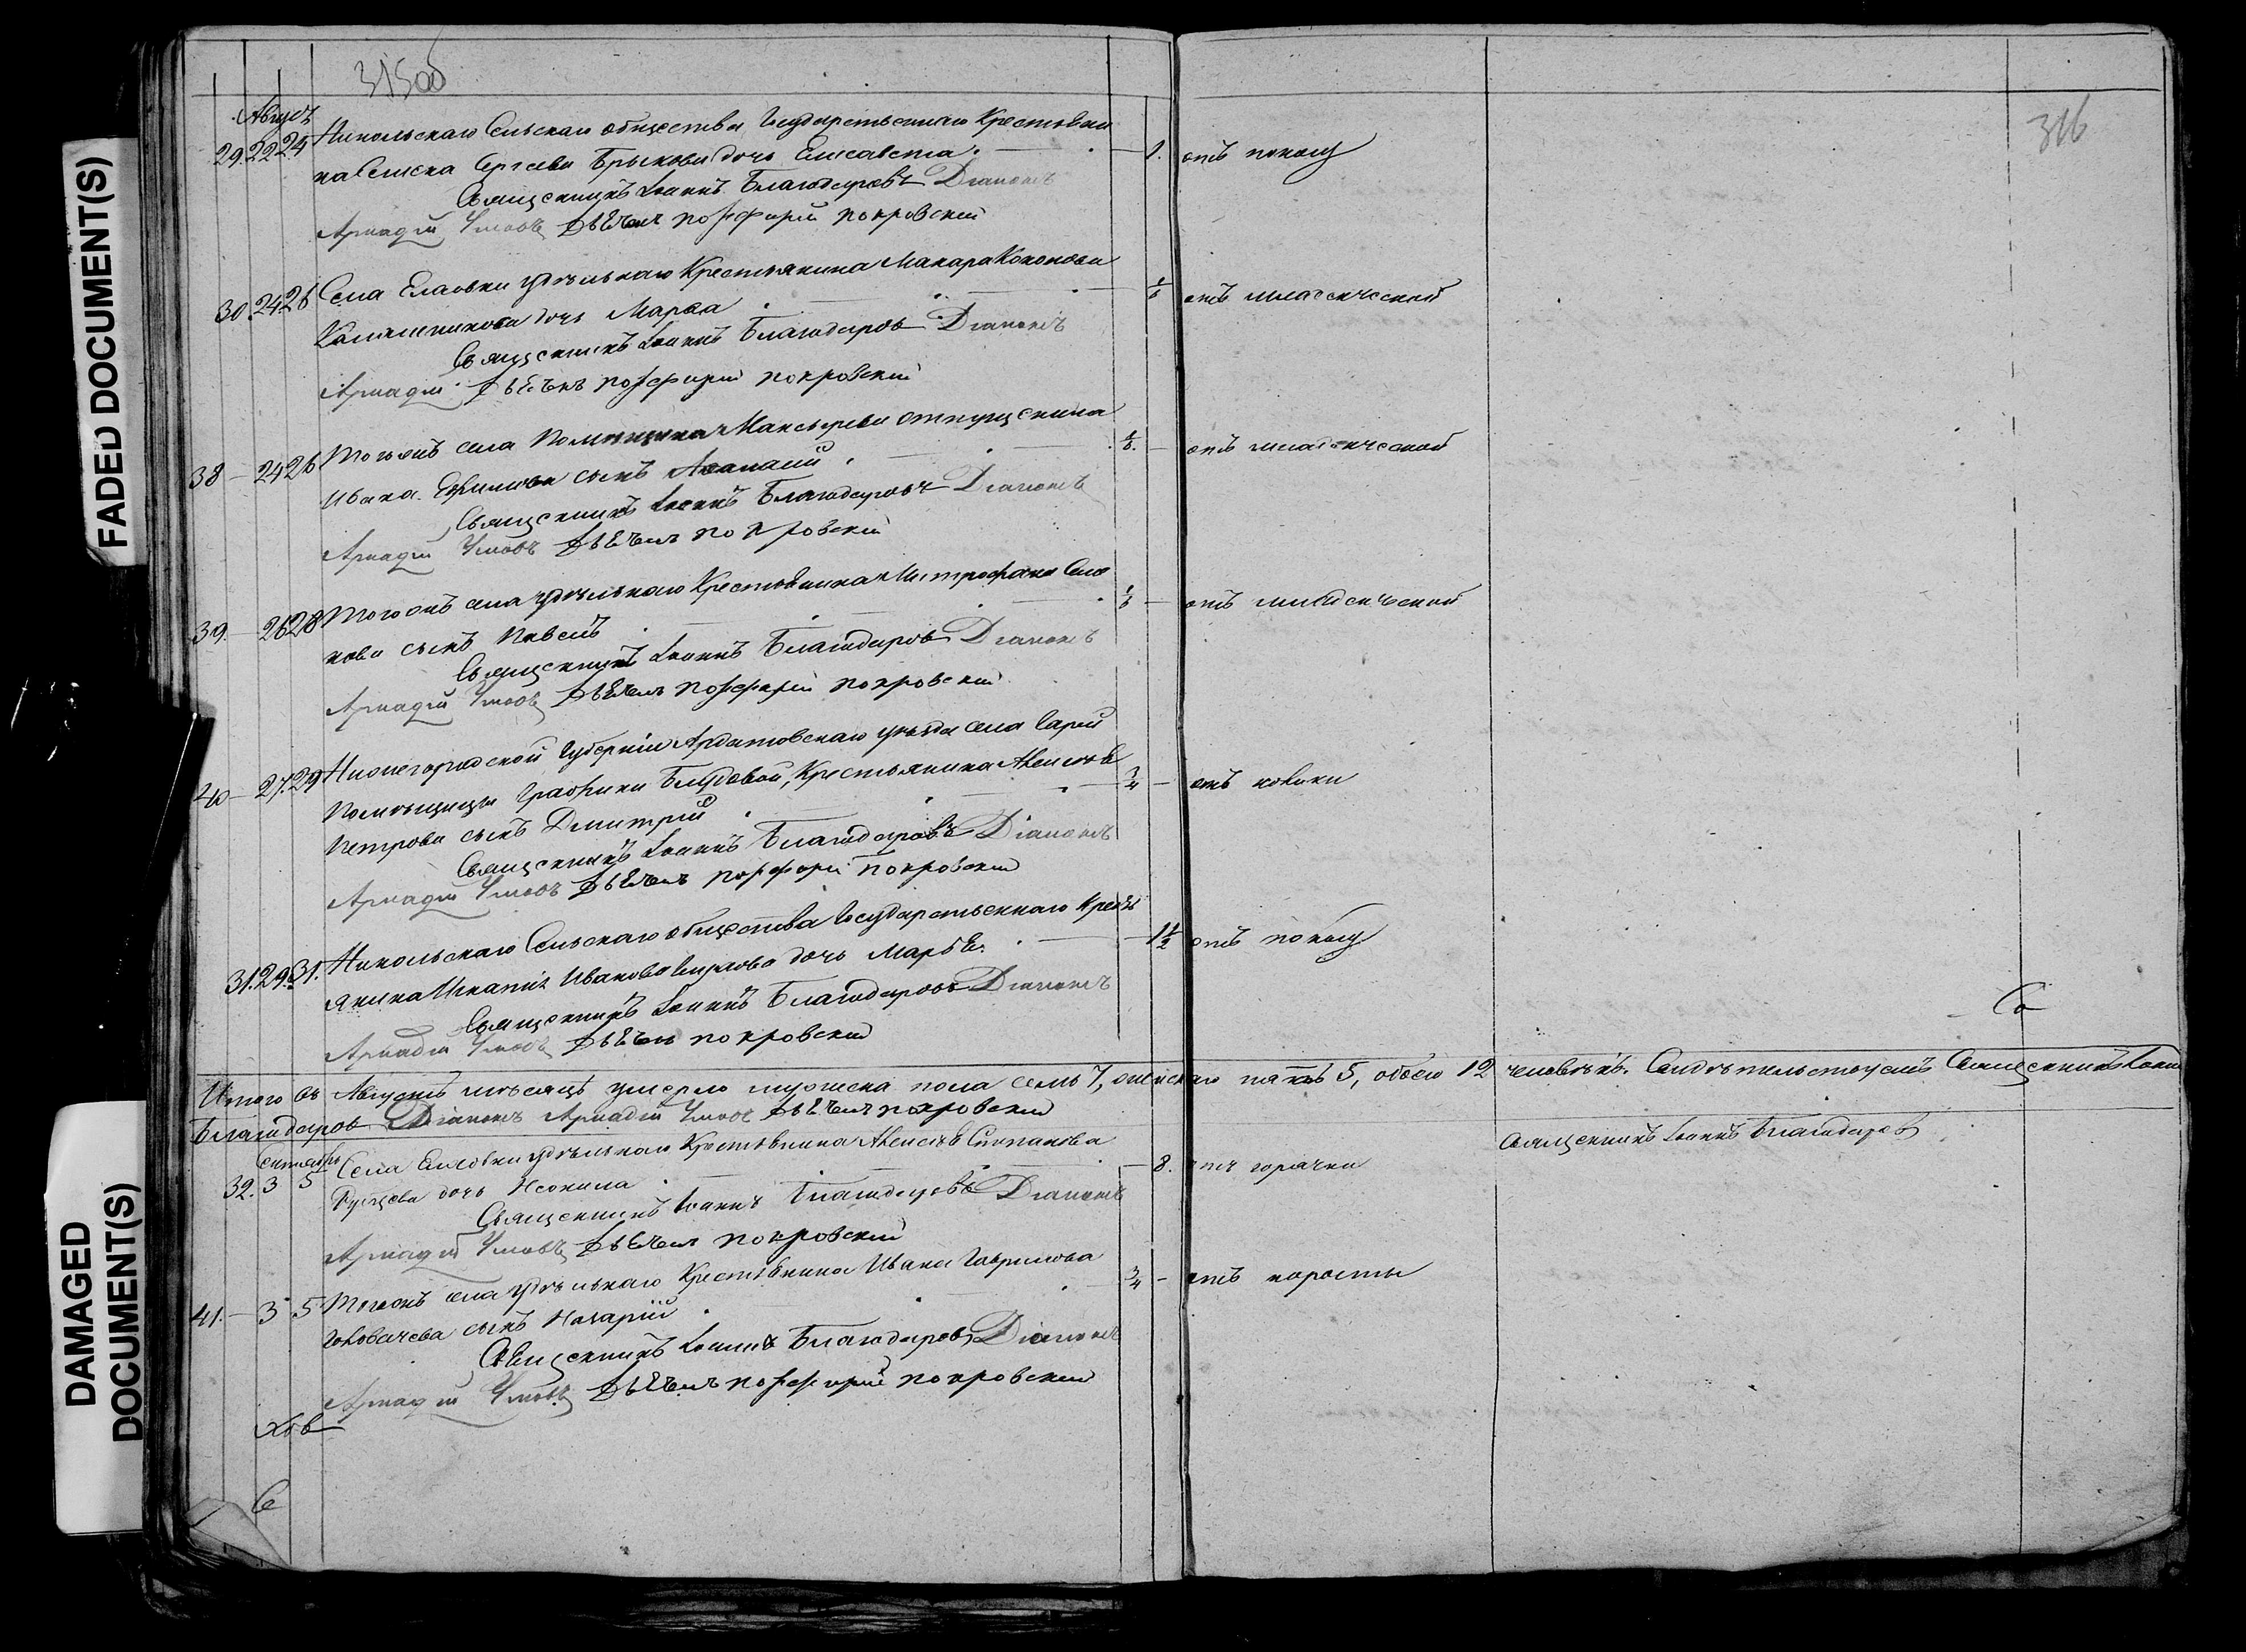 FADED DOCUMENT(S)
DAMAGED
DOCUMENT(S)
315об
316
Августъ
29. 22 24 Никольскаго Сельскаго общества Государственнаго Крестьяни
на Сергѣева дочь Елисавета. 1. отъ поносу
Священникъ Іоаннъ Благодаровъ Діаконъ
Аркадій Умовъ Дьячекъ порфирій покровскій
30. 24 26 Села Елаовки удѣльнаго Крестьянина Макара Кононова
дочь Марѳа 1/6 отъ младенческой
Священникъ Іоаннъ Благодаровъ Діаконъ
Аркадій Дьячекъ порфирій покровскій
38 – 24 26 Тогожъ села Помѣщика отпущенника
Ивана Ефимова сынъ Аѳанасій. 1/6. – отъ младенческой
Священникъ Іоаннъ Благодаровъ Діаконъ
Аркадій Умовъ Дьячекъ покровскій
39. – 26 28 Тогожъ села удѣльнаго Крестьянина Митрофана Семе
нова сынъ Павелъ 1/6 – отъ младенческой
Священникъ Іоаннъ Благодаровъ Діаконъ
Аркадій Умовъ Дьячекъ порфирій покровскій
40 – 27. 29 Нижегородской Губерніи Ардатовскаго уѣзда села
Помѣщицы Графини Блудовой, Крестьянина Алексѣя
Петрова сынъ Дмитрій 3/4 – отъ
Священникъ Іоаннъ Благодаровъ Діаконъ
Аркадій Умовъ Дьячекъ порфирій Покровскій
31. 29. 31. Никольскаго Сельскаго общества Государственнаго Кресть
янина Иванова дочь Марья. 1 1/2 отъ поносу
Священникъ Іоаннъ Благодаровъ Діаконъ
Аркадій Умовъ Дьячекъ покровскій
Со
Итого въ Августѣ мѣсяцѣ умерло мужеска пола семь 7, женскаго пять 5, обоего 12 человѣкъ. Свидѣтельствуемъ Священникъ Іоаннъ
Благодаровъ Діаконъ Аркадій Умовъ Дьячекъ покровскій
Священникъ Іоаннъ Благодаровъ
сентябрь
32. 3 5 Села Елаовки удѣльнаго Крестьянина Алексѣя Степанова
дочь Неонила 8. отъ горячки
Священникъ Іоаннъ Благодаровъ Діаконъ
Аркадій Умовъ Дьячекъ покровскій
41. – 3 5 Тогожъ села удѣльнаго Крестьянина Ивана Гаврилова
сынъ Назарій 3/4 – отъ коросты
Священникъ Іоаннъ Благодаровъ Діаконъ
Аркадій Умовъ Дьячекъ порфирій покровскій